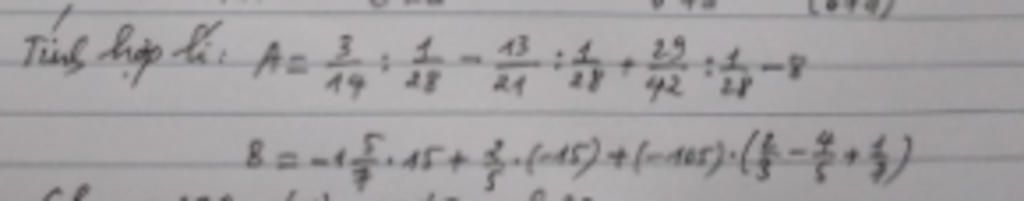 Tính hợp lí: A = 3/14 : 1/28 - 13/21 : 1/28 + 29/42 : 1/28 - 8
B = -1 5/7 . 15 + 2/5 . (-15) + (-105) . (2/3 - 4/5 + 1/7)